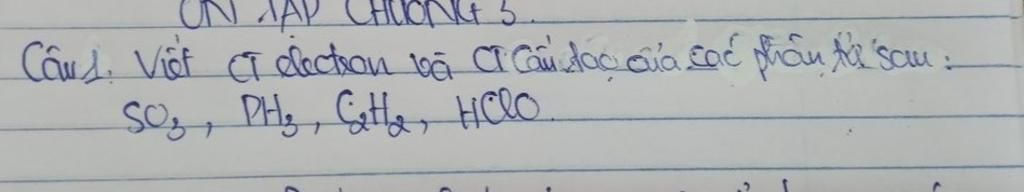 ÔN TẬP CHƯƠNG 3.
Câu 1: Viết CT electron và CT Cấu tạo của các phân tử sau:
SO3, PH3, C2H2, HClO.